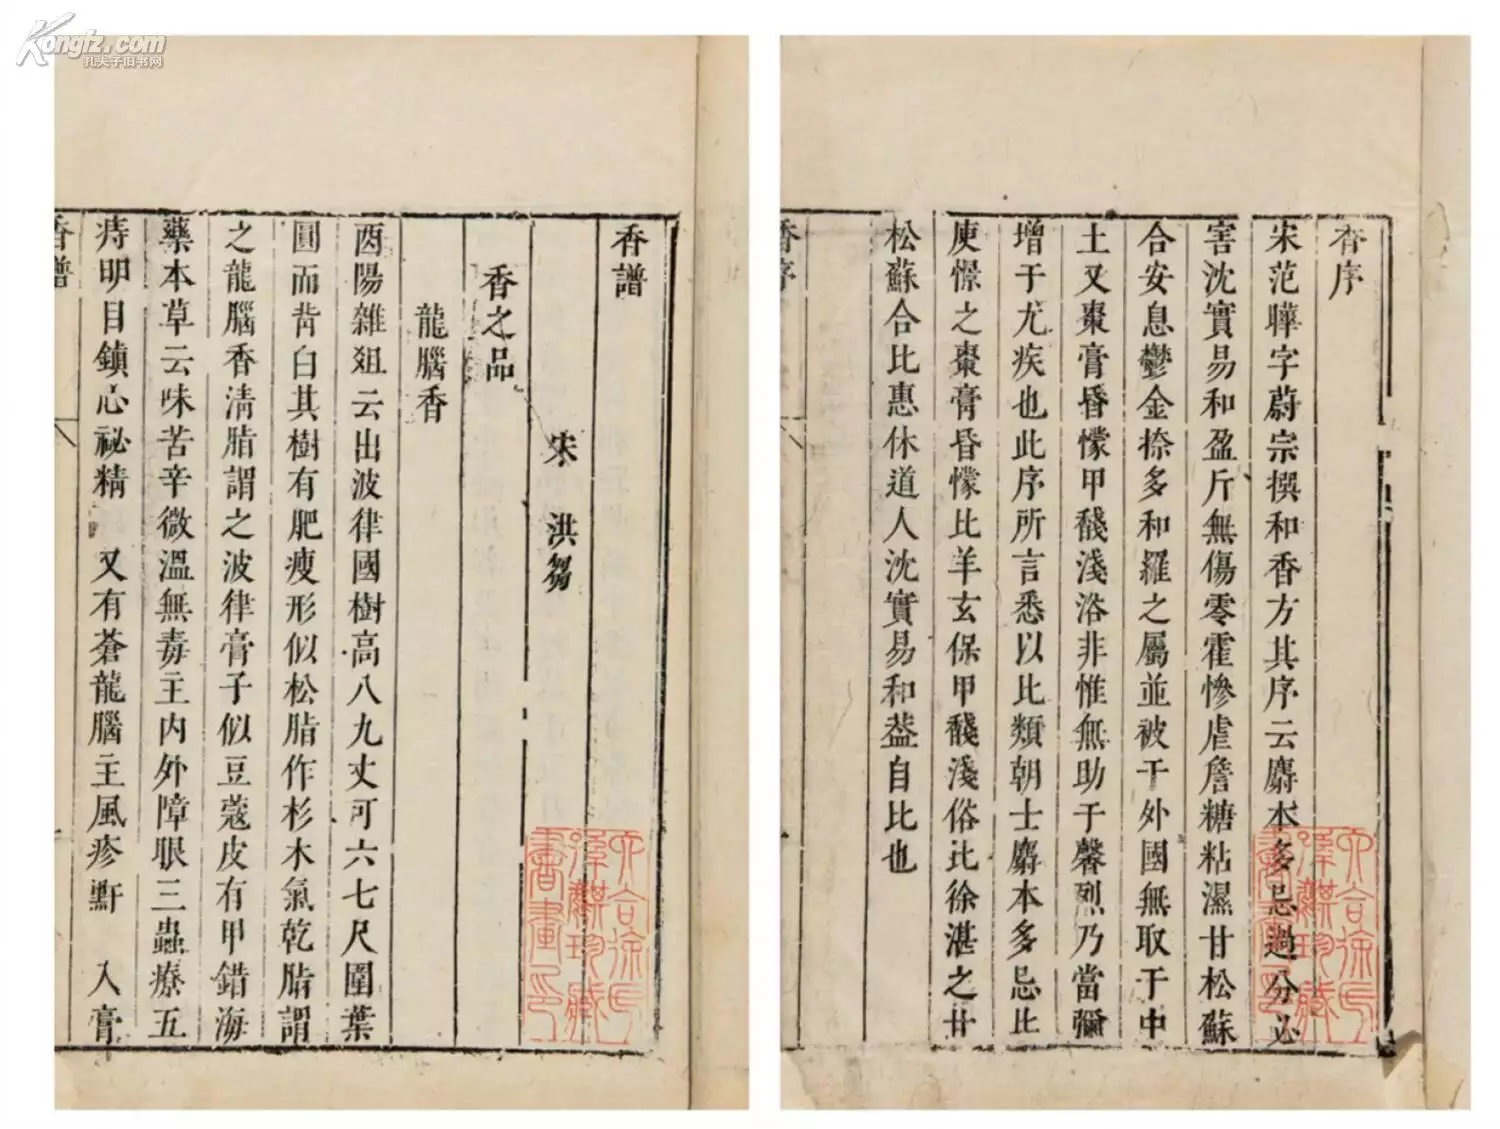 Kongfz.com
孔夫子旧书网
香序
宋范曄字蔚宗撰和香方其序云麝本多忌過分必
害沈實易和盈斤無傷零霍慘虐詹糖粘濕甘松蘇
合安息鬱金捺多和羅之屬並被于外國無取于中
土又棗膏昏懞甲馢淺浴非惟無助于馨烈乃當彌
增于尤疾也此序所言悉以比類朝士麝本多忌比
庾憬之棗膏昏懞比羊玄保甲馢淺俗比徐湛之甘
松蘇合比惠休道人沈實易和葢自比也
香序
六合徐氏
孫麒珍藏
書畫印
香譜
宋 洪芻
香之品
龍腦香
酉陽雜俎云出波律國樹高八九丈可六七尺圍葉
圓而背白其樹有肥瘦形似松脂作杉木氣乾脂謂
之龍腦香清脂謂之波律膏子似豆蔻皮有甲錯海
藥本草云味苦辛微溫無毒主內外障眼三蟲療五
痔明目鎮心祕精 又有蒼龍腦主風疹䵟 入膏
香譜
六合徐氏
孫麒珍藏
書畫印